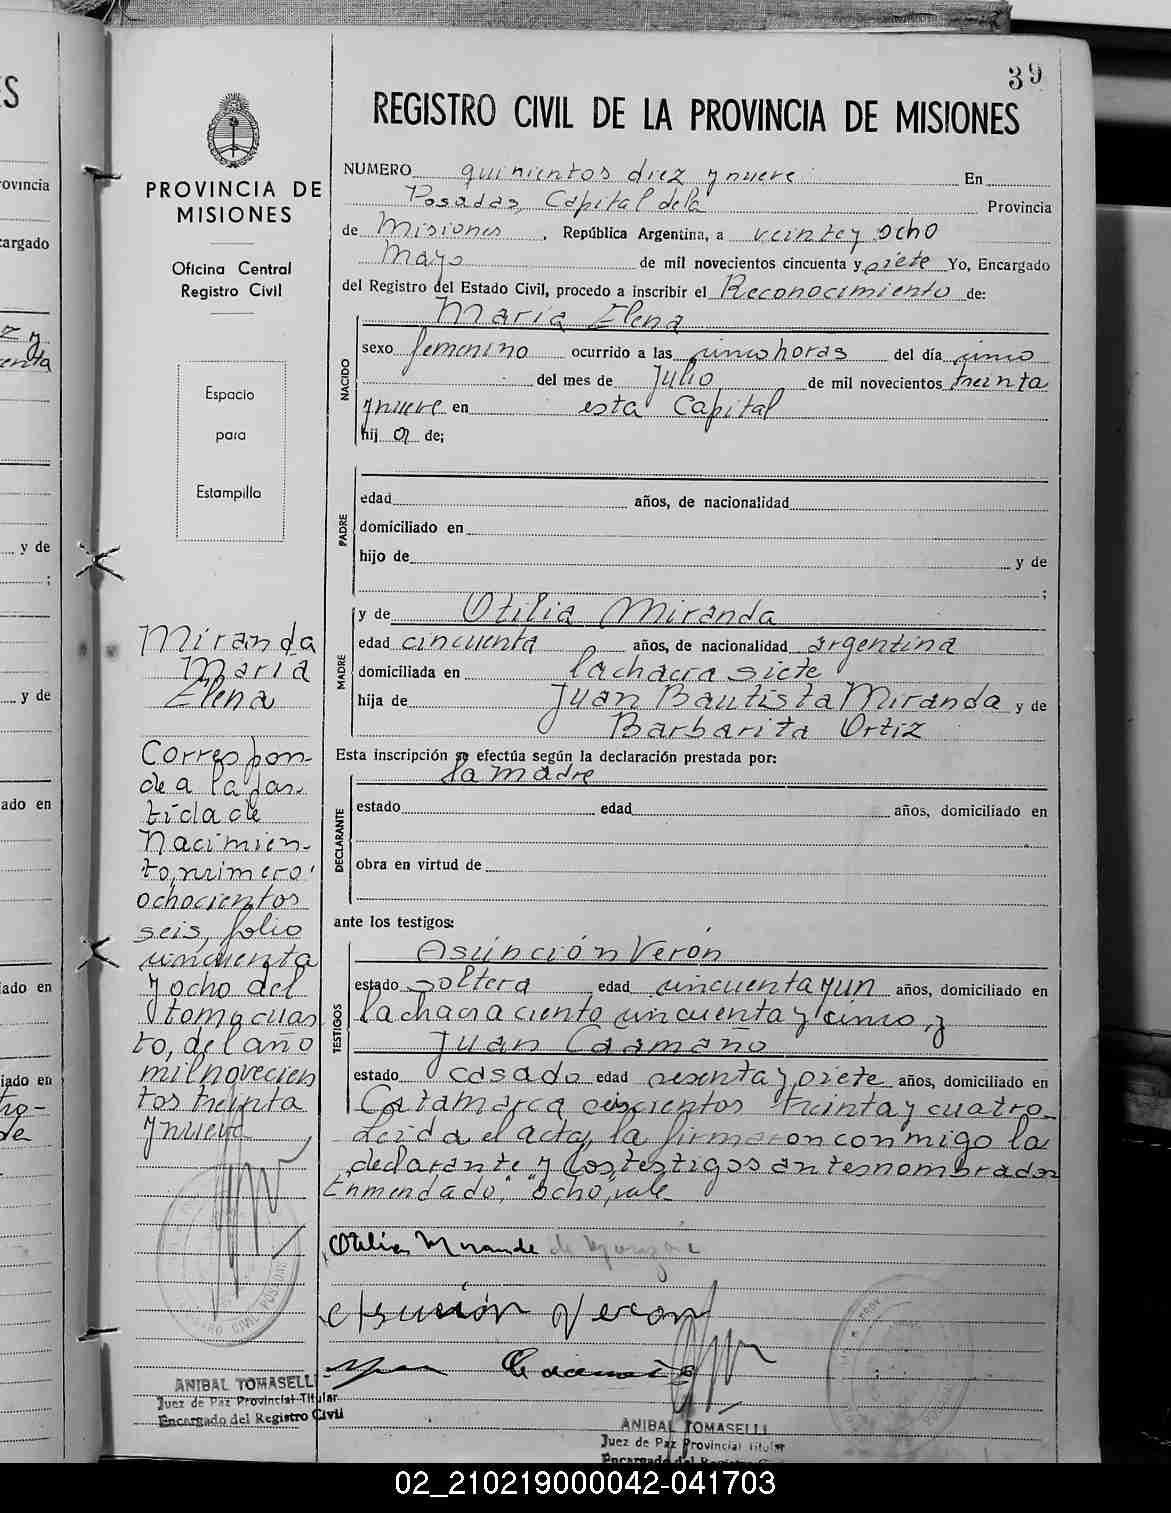 39
REGISTRO CIVIL DE LA PROVINCIA DE MISIONES
PROVINCIA DE
MISIONES
Oficina Central
Registro Civil
Espacio
para
Estampilla
NUMERO quinientos diez y nueve En
Posadas, Capital dela Provincia
de Misiones, República Argentina, a veinte y ocho
Mayo de mil novecientos cincuenta y siete Yo, Encargado
del Registro del Estado Civil, procedo a inscribir el Reconocimiento de:
Maria Elena
NACIDO
sexo femenino ocurrido a las cinco horas del día cinco
del mes de Julio de mil novecientos treinta
y nueve en esta Capital
hij a de;
PADRE
edad años, de nacionalidad
domiciliado en
hijo de y de
;
y de Otilia Miranda
MADRE
edad cincuenta años, de nacionalidad argentina
domiciliada en la chacra siete
hija de Juan Bautista Miranda y de
Barbarita Ortiz
Esta inscripción se efectúa según la declaración prestada por:
la madre
DECLARANTE
estado edad años, domiciliado en
obra en virtud de
ante los testigos:
Asunción Verón
TESTIGOS
estado soltera edad cincuenta y un años, domiciliado en
la chacra ciento cincuenta y cinco, y
Juan Caamaño
estado casado edad sesenta y siete años, domiciliado en
Catamarca seiscientos treinta y cuatro-
Leida el acta, la firmaron conmigo la
declarante y los testigos antes nombrados
Enmendado: "ocho", vale
Otilia Mirande de
Asunción Veron
Juan Caamaño
ANIBAL TOMASELLI
Juez de Paz Provincial Titular
Encargado del Registro Civil
Miranda
Maria
Elena
Correspon-
de a la par-
tida de
Nacimien-
to, número
ochocientos
seis, folio
cincuenta
y ocho del
tomo cuar
to, del año
mil novecien
tos treinta
y nueve
ANIBAL TOMASELLI
Juez de Paz Provincial Titular
Encargado del Registro Civil
ES
rovincia
cargado
z y
enta
y de
;
y de
ado en
iado en
iado en
02_210219000042-041703